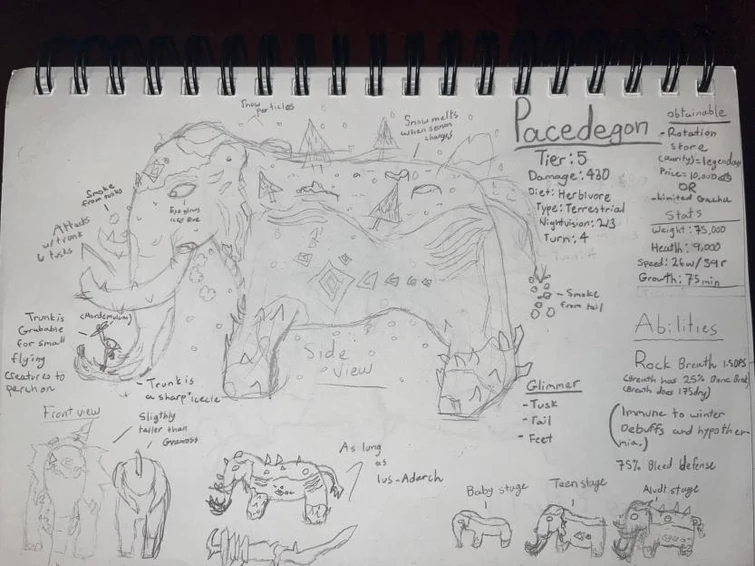 Snow
particles
Snow melts
when season
changes
Smoke
from tusks
Attacks
w/trunk
& tusks
Eye glows
Trunk is
Grabable
for small
flying
creatures to
perch on
- Trunk is
a sharp icicle
Side
view
Pacedegon
Tier: 5
Damage: 430
Diet: Herbivore
Type: Terrestrial
Nightvision: 2/3
Turn: 4
- Smoke
from tail
Glimmer
- Tusk
- Tail
- Feet
obtainable
- Rotation
store
(Rarity)= legendary
Price= 10,000
OR
- Limited Gacha
Stats
Weight: 75,000
Health: 9,000
Speed: 26w/59r
Growth: 75min
Abilities
Rock Breath
(Breath has 25%
(Breath does
(Immune to winter
Debuffs and hypother-
mia.)
75% Bleed defense
Front view
Sligthly
taller than
As long
as
Ius-Adarch
Baby stage
Teen stage
Aludt stage